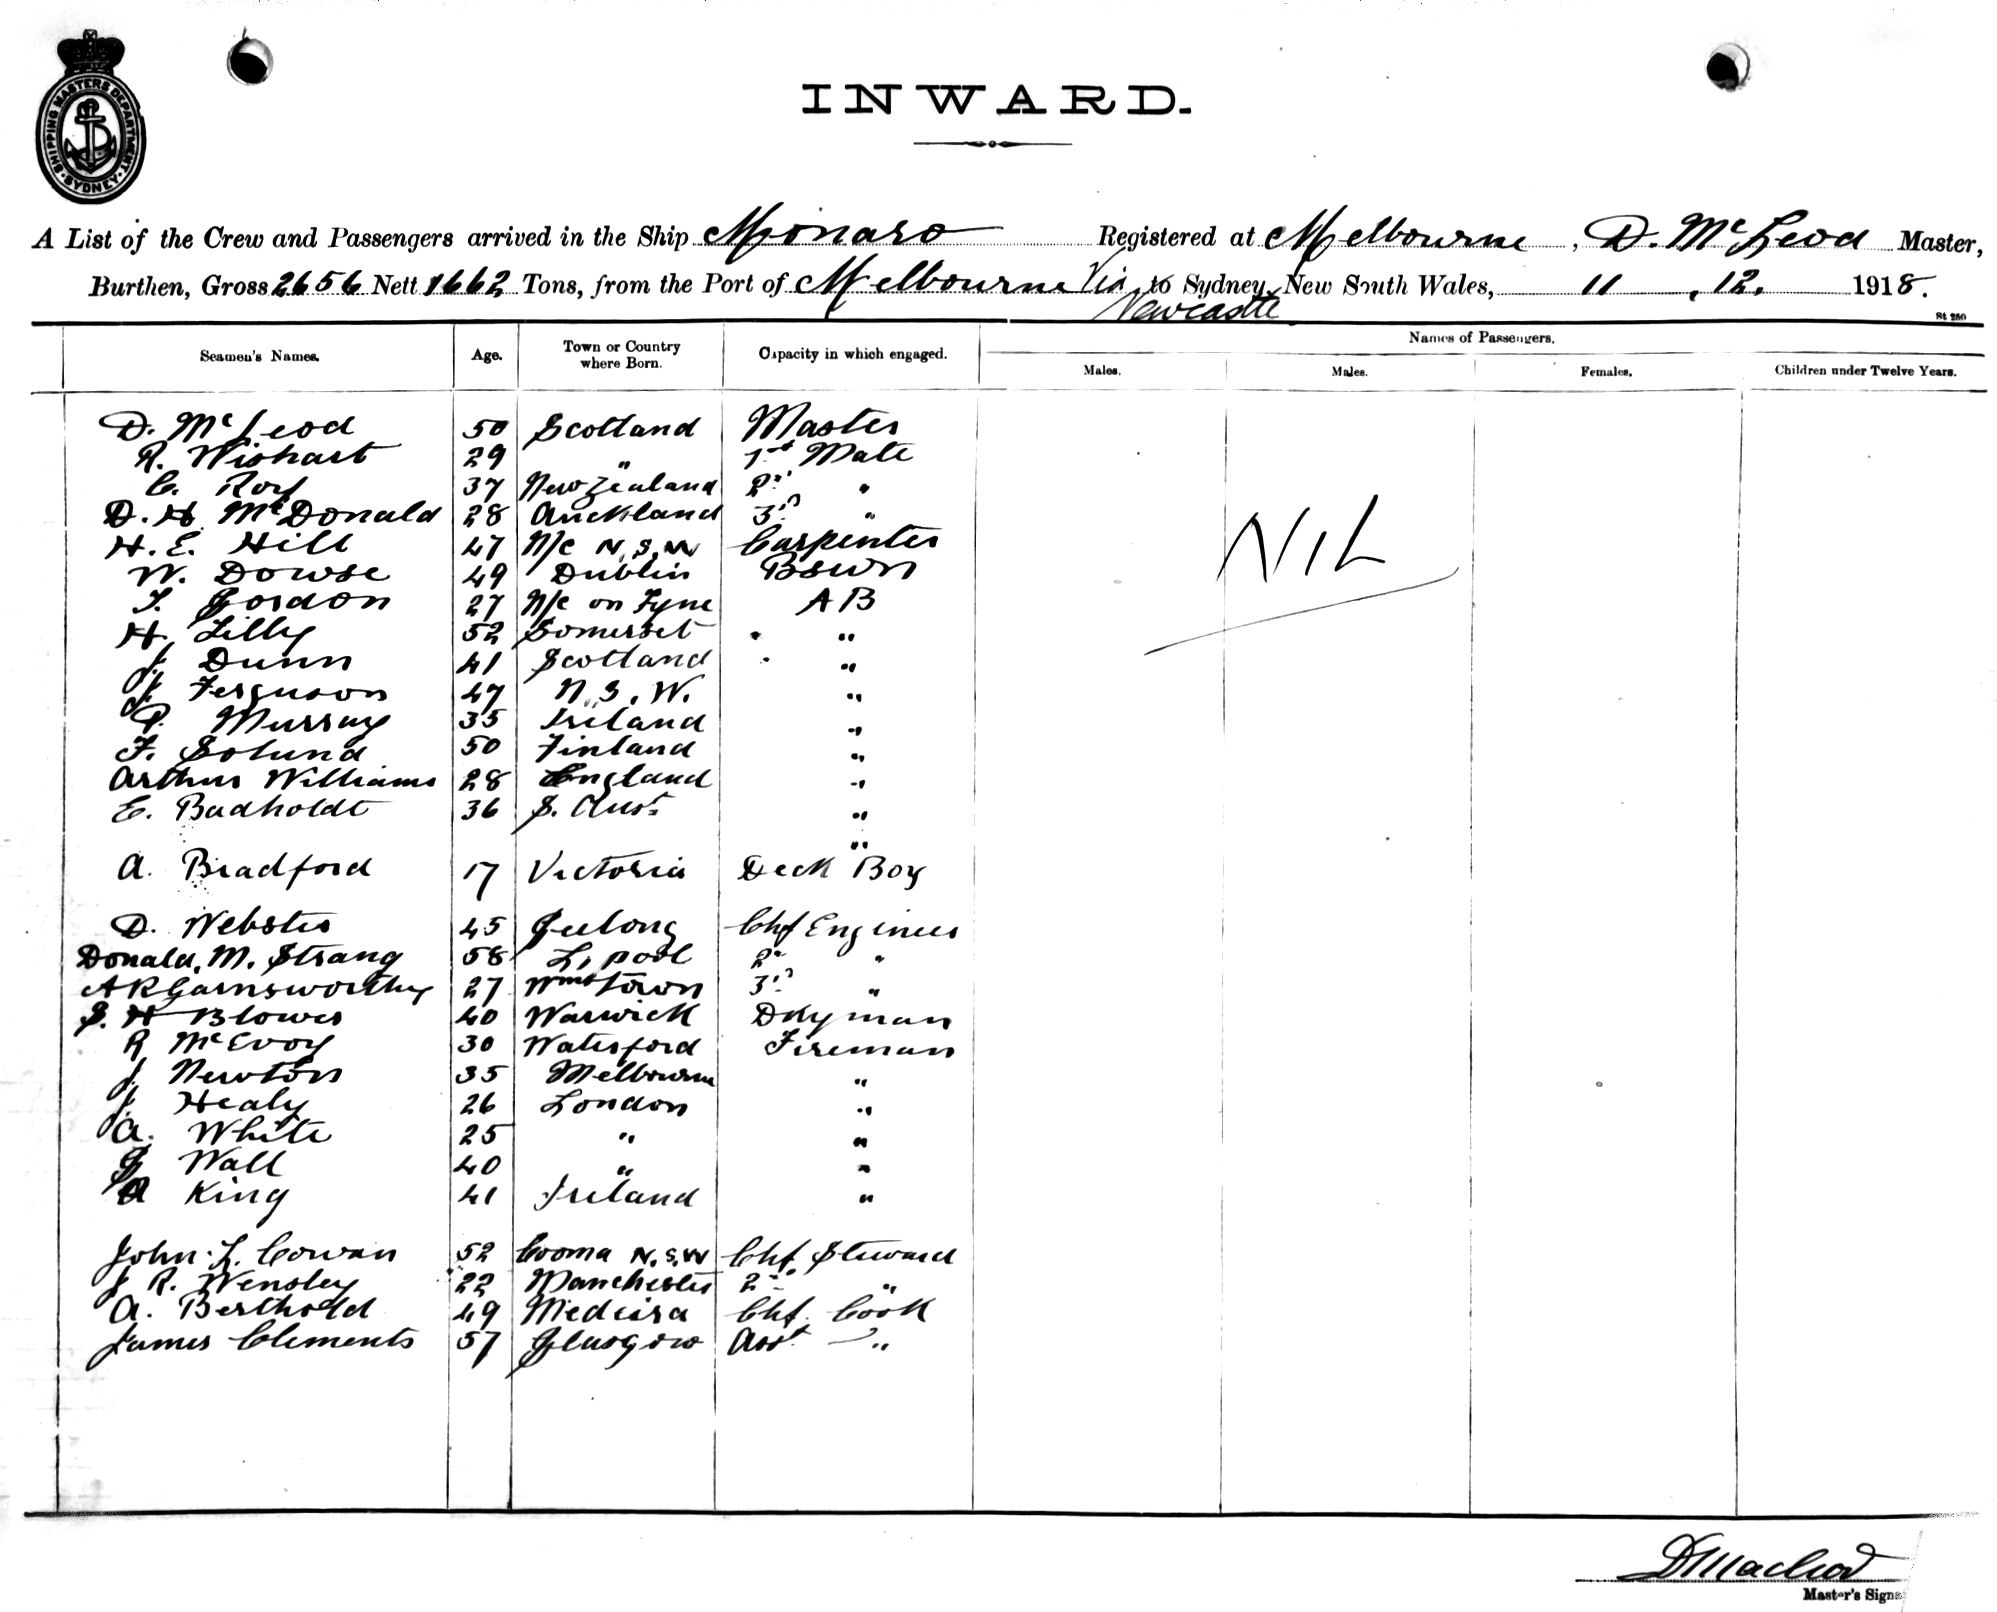 SHIPPING MASTERS DEPARTMENT. SYDNEY.
INWARD.
A List of the Crew and Passengers arrived in the Ship Monaro Registered at Melbourne, D. McLeod Master,
Burthen, Gross 2656 Nett 1662 Tons, from the Port of Melbourne Via to Sydney, New South Wales, 11, 12. 1918.
Newcastle
St 280
Seamen's Names. Age. Town or Country where Born. Capacity in which engaged. Names of Passengers.
Males. Males. Females. Children under Twelve Years.
D. McLeod 50 Scotland Master
R. Wishart 29 " 1st Mate
C. Roy 37 New Zealand 2nd "
D. H. McDonald 28 Auckland 3rd "
H. E. Hill 47 N/c N.S.W Carpenter
NIL
W. Dowse 49 Dublin Bswn
T. Gordon 27 N/c on Tyne AB
H. Lilly 52 Somerset "
J. Dunn 41 Scotland "
J. Ferguson 47 N.S.W. "
P. Murray 35 Ireland "
F. Solund 50 Finland "
Arthur Williams 28 England "
E. Badholdt 36 S. Aust "
"
A. Bradford 17 Victoria Deck Boy
D. Webster 45 Geelong Chf Engineer
Donald. M. Strang 58 L,pool 2nd "
A R Garnsworthy 27 Wmstown 3rd "
S. H Blower 40 Warwick Dkyman
R McEvoy 30 Waterford Fireman
J. Newton 35 Melbourne "
J. Healy 26 London "
A. White 25 " "
G Wall 40 " "
A King 41 Ireland "
John. L. Cowan 52 Cooma N.S.W Chf. Steward
J R. Wensley 22 Manchester 2nd "
A. Berthold 49 Medeira Chf. Cook
James Clements 57 Glasgow Asst "
D Macleod
Master's Signa